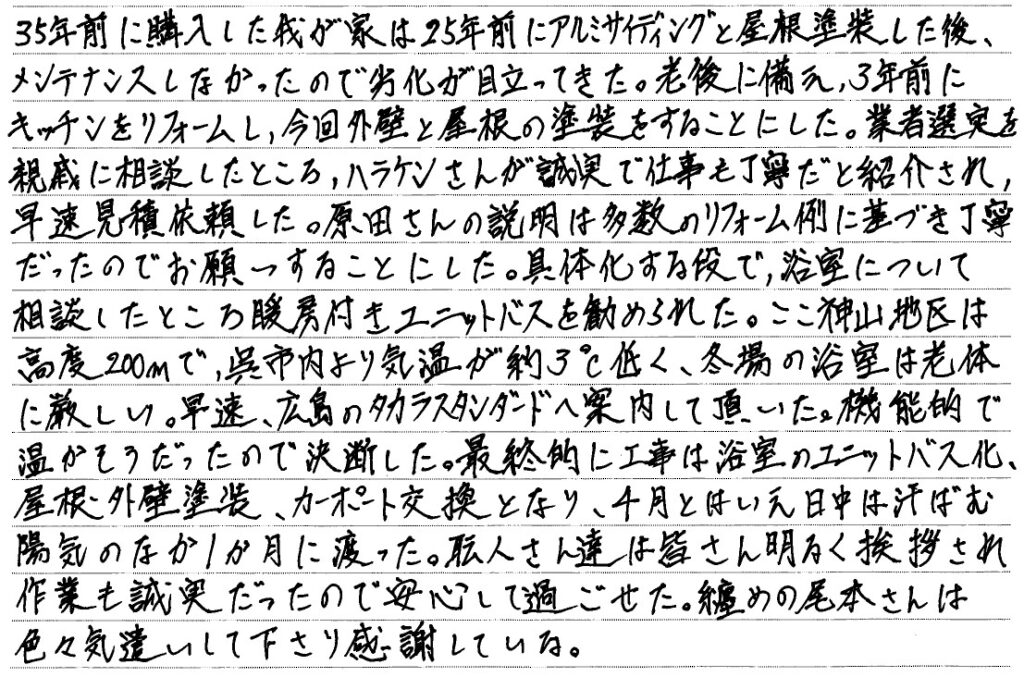 35年前に購入した我が家は25年前にアルミサイディングと屋根塗装した後、
メンテナンスしなかったので劣化が目立ってきた。老後に備え、3年前に
キッチンをリフォームし、今回外壁と屋根の塗装をすることにした。業者選実を
親戚に相談したところ、ハラケンさんが誠実で仕事も丁寧だと紹介され、
早速見積依頼した。原田さんの説明は多数のリフォーム例に基づき丁寧
だったのでお願いすることにした。具体化する段で、浴室について
相談したところ暖房付きユニットバスを勧められた。ここ神山地区は
高度200mで、呉市内より気温が約3℃低く、冬場の浴室は老体
に厳しい。早速、広島のタカラスタンダードへ案内して頂いた。機能的で
温かそうだったので決断した。最終的に工事は浴室のユニットバス化、
屋根・外壁塗装、カーポート交換となり、4月とはいえ日中は汗ばむ
陽気のなか1か月に渡った。職人さん達は皆さん明るく挨拶され
作業も誠実だったので安心して過ごせた。纏めの尾本さんは
色々気遣いして下さり感謝している。